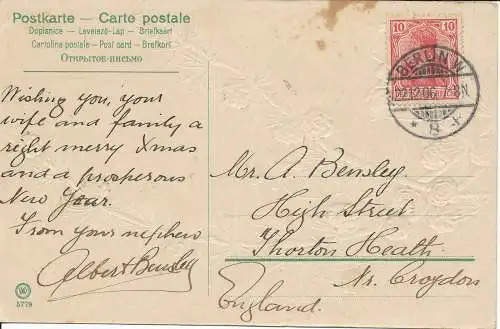 Postkarte – Carte postale
Dopisnice – Levelező-Lap – Briefkaart
Cartolina postale – Post card – Brefkort
Открытое-письмо
Wishing you, your
wife and family a
right merry Xmas
and a prosperous
New Year.
From your nephew
Albert Bensley
5779
10 10
BERLIN W.
8
Mr. A. Bensley.
High Street.
Thorton Heath
Nr. Croydon
England.